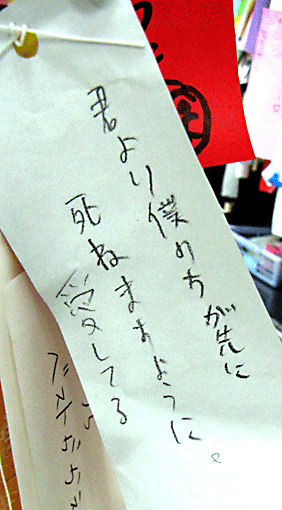 君より僕のちが先に
死ねますように。
愛してる